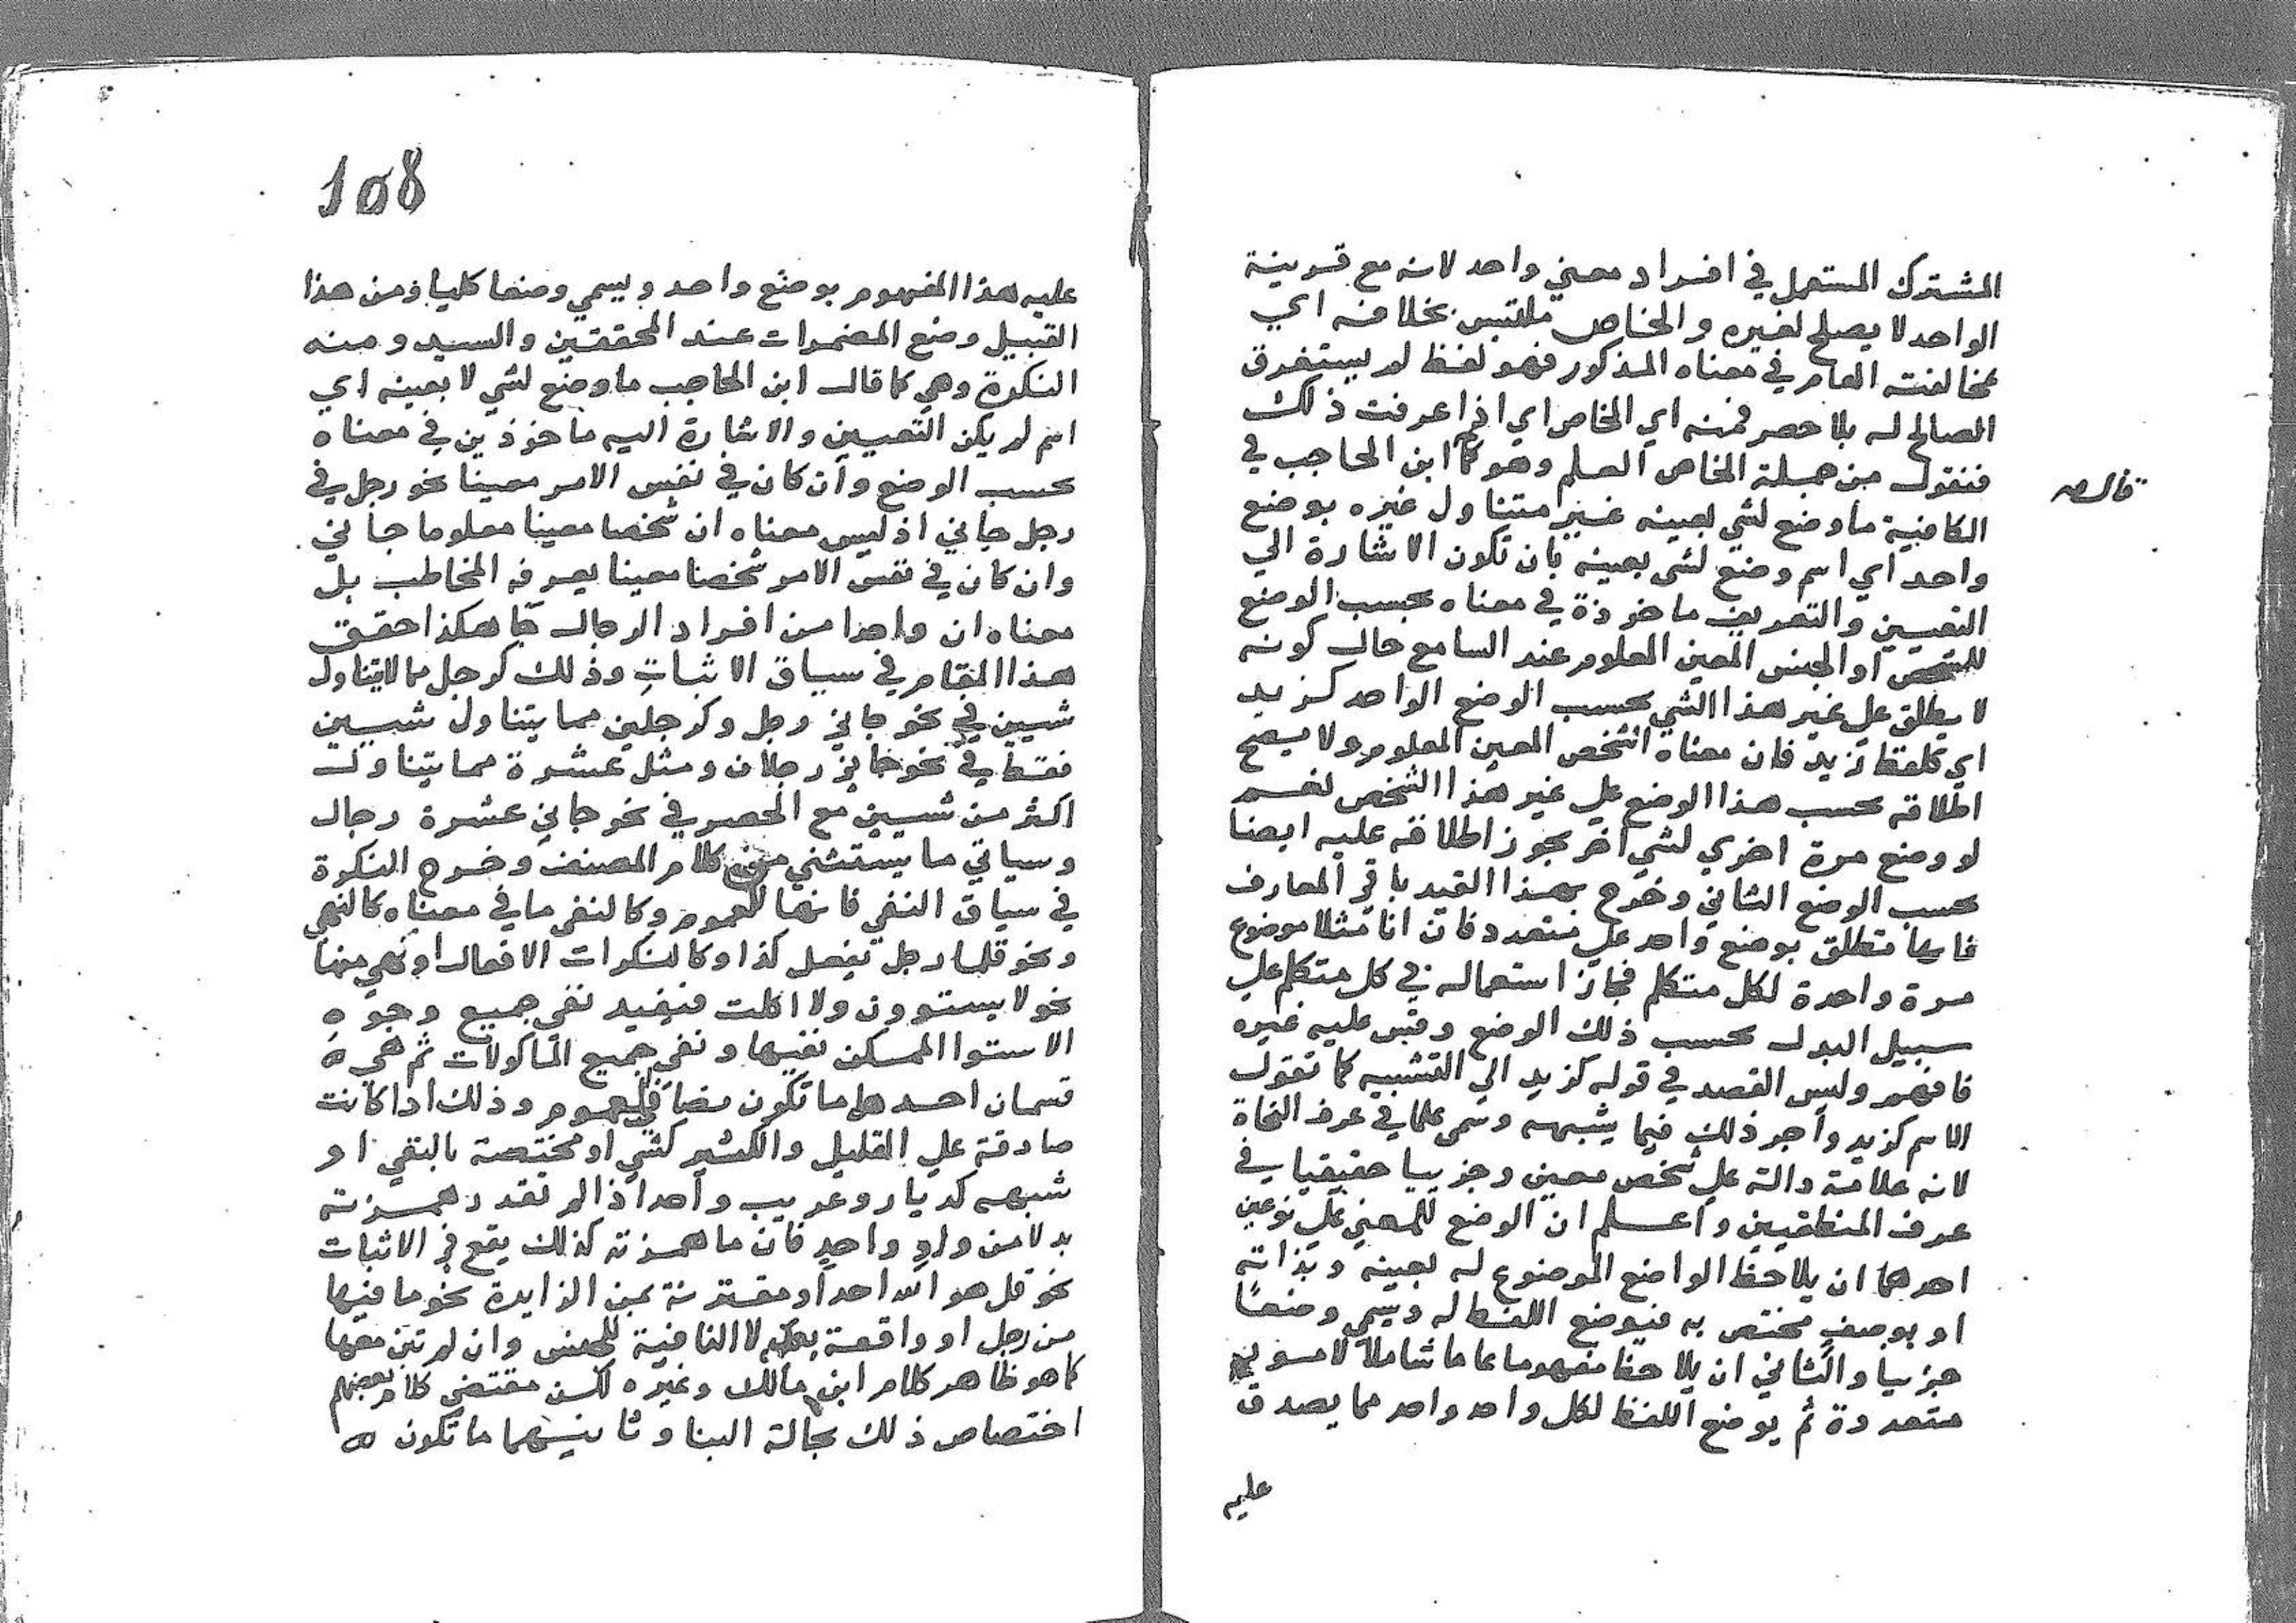 المشترك المستعمل في افراد معني واحد لانه مع قرينة
الواحد لا يصلح لغيره والخاص ملتبس بخلافه اي
بمخالفته العام في معناه المذكور فهو لفظ لم يستغرق
الصالح له بلا حصر فمنه اي الخاص اي اذا عرفت ذلك
فنقول من جملة الخاص العلم وهو كما ابن الحاجب في
قال صح
الكافية ما وضع لشي بعينه غير متناول غيره بوضع
واحد اي اسم وضع لشي بعينه بان تكون الاشارة الي
التعيين والتعريف ماخوذة في معناه بحسب الوضع
للشخص او الجنس المعين المعلوم عند السامع حال كونه
لا يطلق علي غير هذا الشي بحسب الوضع الواحد كزيد
اي كلفظ زيد فان معناه الشخص المعين المعلوم ولا يصح
اطلاقه بحسب هذا الوضع علي غير هذا الشخص نعم
لو وضع مرة اخري لشي اخر يجوز اطلاقه عليه ايضا
بحسب الوضع الثاني وخرج بهذا القيد باقي المعارف
فانها تطلق بوضع واحد علي متعدد فان انا مثلا موضوع
مرة واحدة لكل متكلم فجاز استعماله في كل متكلم علي
سبيل البدل بحسب ذلك الوضع وقس عليه غيره
فافهم وليس القصد في قوله كزيد الي التشبيه كما تقول
الاسم كزيد واجر ذلك فيما يشبهه وسمي علما في عرف النحاة
لانه علامة دالة علي شخص معين وجزييا حقيقيا في
عرف المنطقيين واعلم ان الوضع للمعني علي نوعين
احدهما ان يلاحظ الواضع الموضوع له بعينه وبذاته
او بوصف مختص به فيوضع اللفظ له ويسمي وضعا
جزييا والثاني ان يلاحظ مفهوما عاما شاملا لامور
متعددة ثم يوضع اللفظ لكل واحد واحد مما يصدق
عليه
108
عليه هذا المفهوم بوضع واحد ويسمي وضعا كليا ومن هذا
القبيل وضع المضمرات عند المحققين والسيد ومنه
النكرة وهي كما قال ابن الحاجب ما وضع لشي لا بعينه اي
اسم لم يكن التعيين والاشارة اليه ماخوذين في معناه
بحسب الوضع وان كان في نفس الامر معينا نحو رجل في
رجل جاني اذ ليس معناه ان شخصا معينا معلوما جاني
وان كان في نفس الامر شخصا معينا يعرفه المخاطب بل
معناه ان واحدا من افراد الرجال جا هكذا حقق
هذا المقام في سياق الاثبات وذلك كرجل مما لا يتناول
شيين في نحو جاني رجل وكرجلين مما يتناول شيين
فقط في نحو جاني رجلان ومثل عشرة مما يتناول
اكثر من شيين مع الحصر في نحو جاني عشرة رجال
وسياتي ما يستثني من كلام المصنف وخرج النكرة
في سياق النفي فانها للعموم وكالنفي ما في معناه كالنهي
ونحو قلما رجل يفعل كذا وكالنكرات الافعال او نهي منها
نحو لا يستوون ولا اكلت فيفيد نفي جميع وجوه
الاستوا الممكن نفيها ونفي جميع الماكولات ثم هي
قسمان احدهما ما تكون نصا في العموم وذلك اذا كانت
صادقة علي القليل والكثير كشي او مختصة بالنفي او
شبهه كديار وعريب واحد اذا لم تقدر همزته
بدلا من واو واحد فان ما همزته كذلك يقع في الاثبات
نحو قل هو الله احد او مقترنة بمن الزايدة نحو ما فيها
من رجل او واقعة بعد لا النافية للجنس وان لم تبن معها
كما هو ظاهر كلام ابن مالك وغيره لكن مقتضي كلام بعضهم
اختصاص ذلك بحالة البنا وثانيهما ما تكون